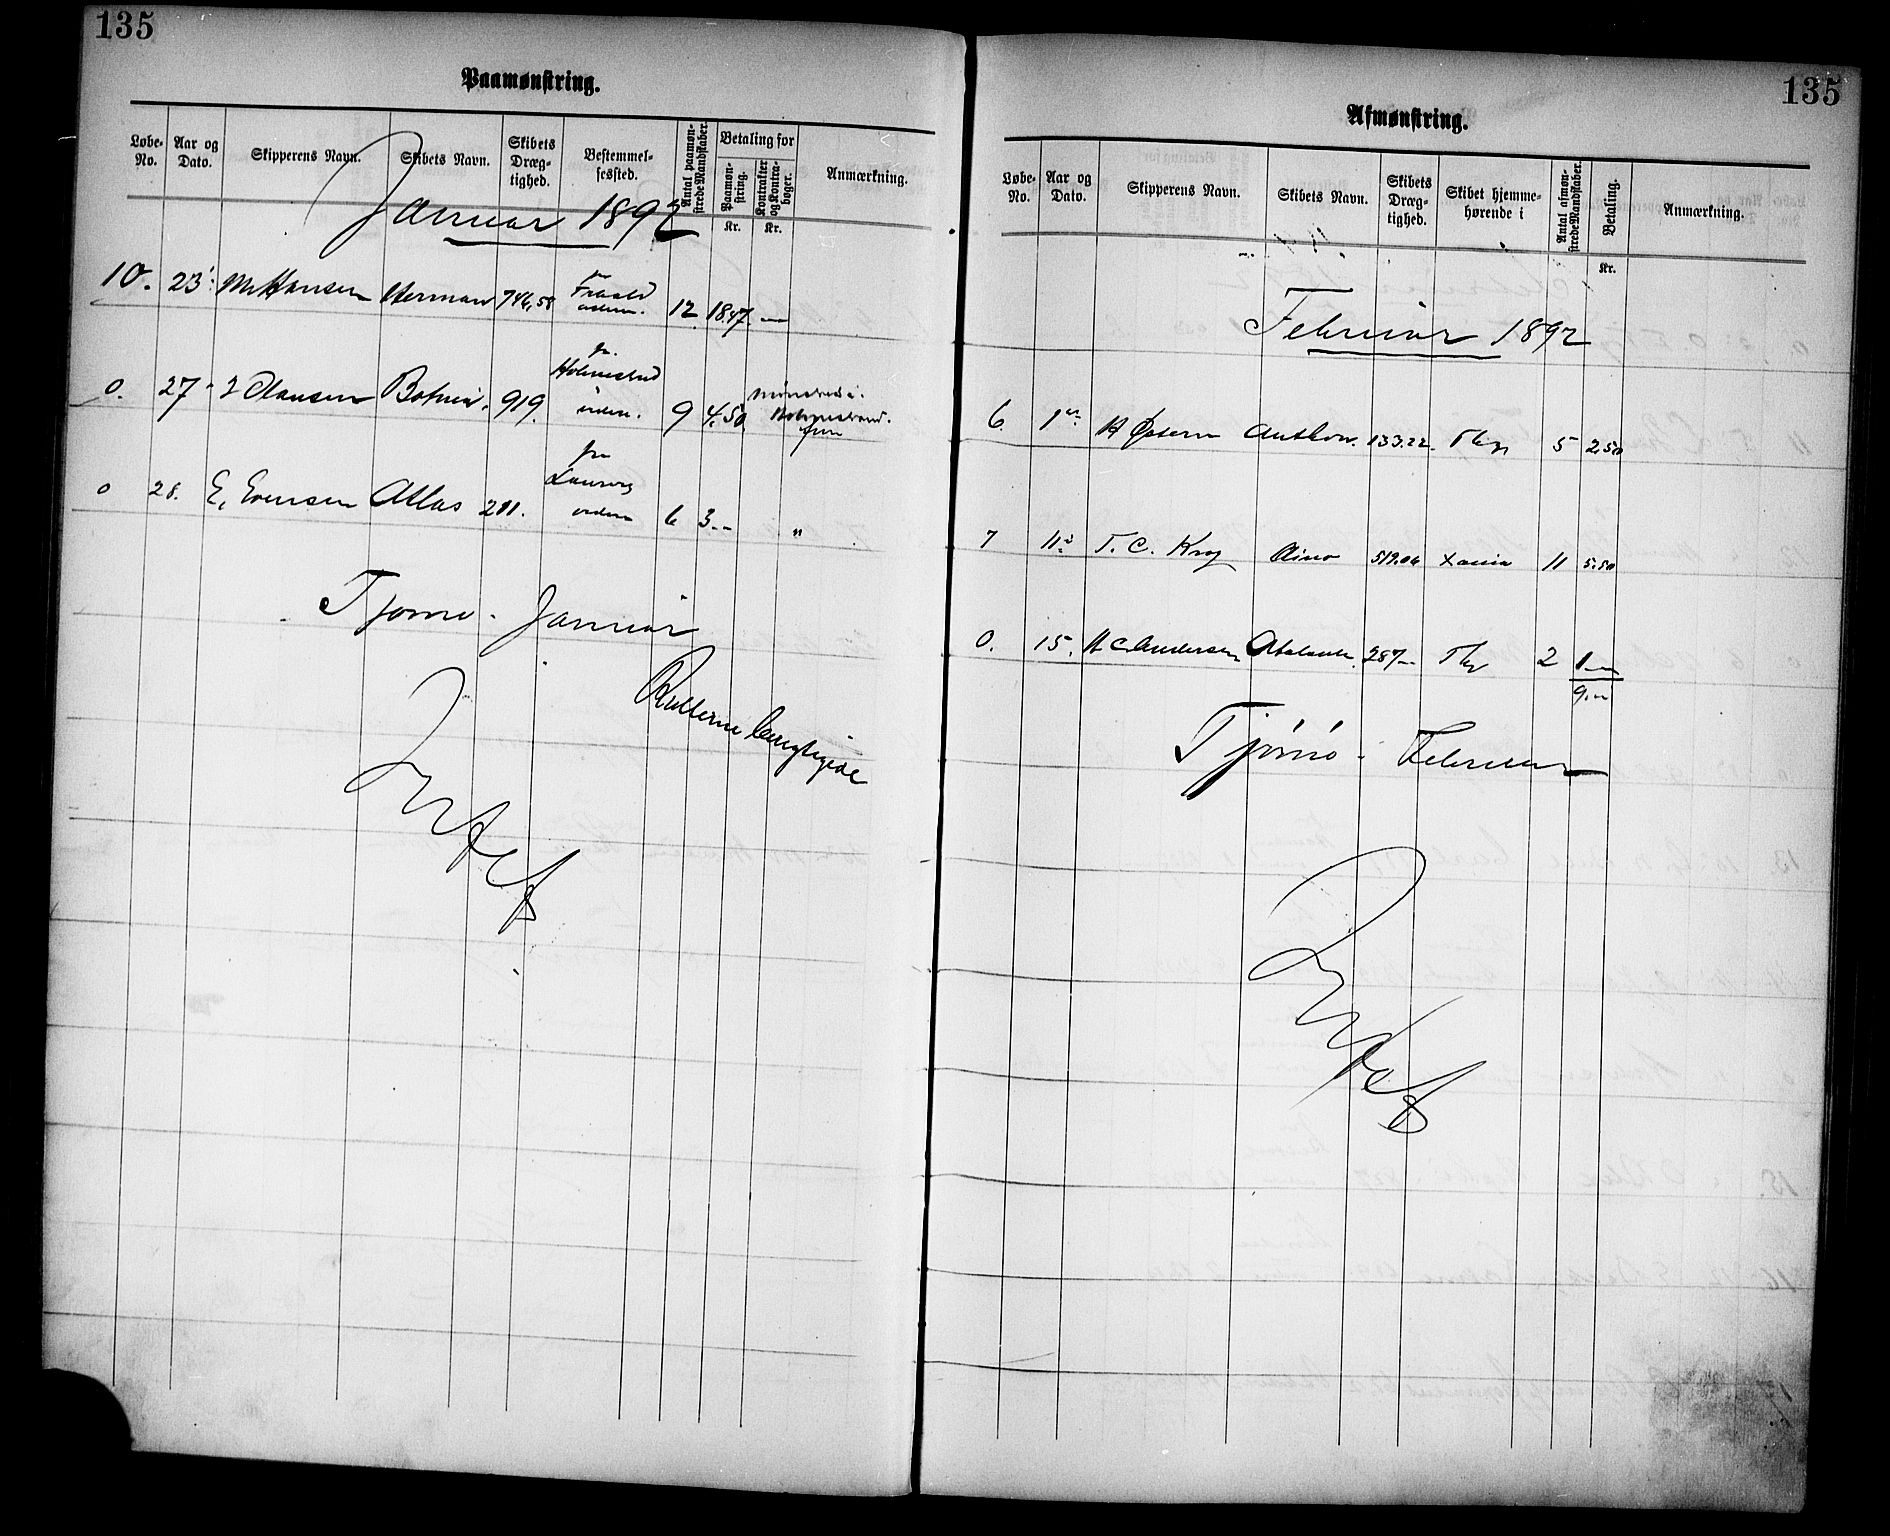 135
Paamønstring.
Løbe-No. Aar og Dato. Skipperens Navn. Skibets Navn. Skibets Dræg-tighed. Bestemmel-sessted. Antal paamøn-strede Mandskaber. Betaling for Paamøn-string. Kontrakter og Kontra-bøger. Anmærkning.
Kr. Kr.
Januar 1892
10. 23 M Hansen Herman 746,58 12 18.47. —
0. 27 Clausen Botnia. 919. fra Holmestrand 9 4.50
0 28. E. Evensen Atlas 211. fra 6 3.--  "
Tjømø - Januar
Rullerne berigtigede
135
Afmønstring.
Løbe-No. Aar og Dato. Skipperens Navn. Skibets Navn. Skibets Dræg-tighed. Skibet hjemme-hørende i Antal afmøn-strede Mandskaber. Betaling. Anmærkning.
Kr.
Februar 1892
6. 1 H 133.22. Tbg 5 2.50
7 11 T. C. Krog Aino 519.06 Xania 11 5.50
0. 15. H C Andersen Atalanta 287-- Tbg 2 1 --
9.--
Tjømø - Februar